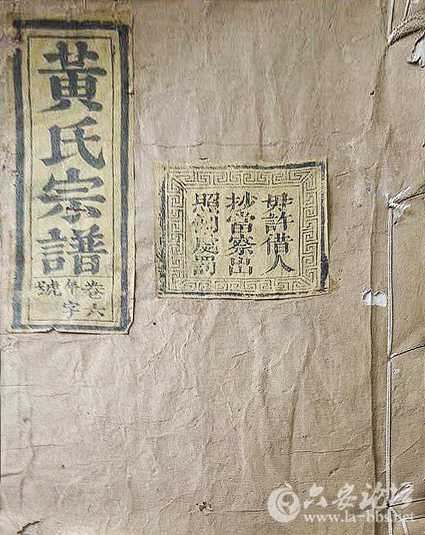 黃氏宗譜
卷六
字
號
毋許借人
抄當察出
照綱處罰
六安论坛
www.la-bbs.net